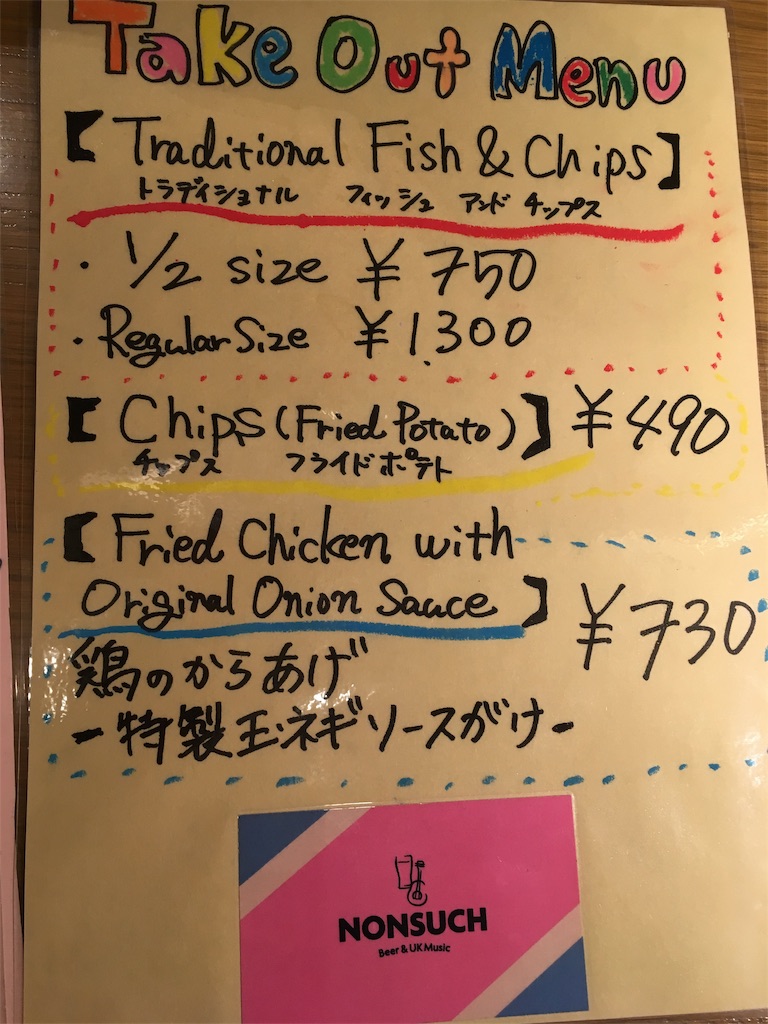 Take Out Menu
【Traditional Fish & Chips】
トラディショナル フィッシュ アンド チップス
・1/2 size ¥750
・Regular Size ¥1.300
【Chips (Fried Potato)】 ¥490
チップス フライドポテト
【Fried Chicken with
Original Onion Sauce】 ¥730
鶏のからあげ
-特製玉ネギソースがけ-
NONSUCH
Beer & UK Music